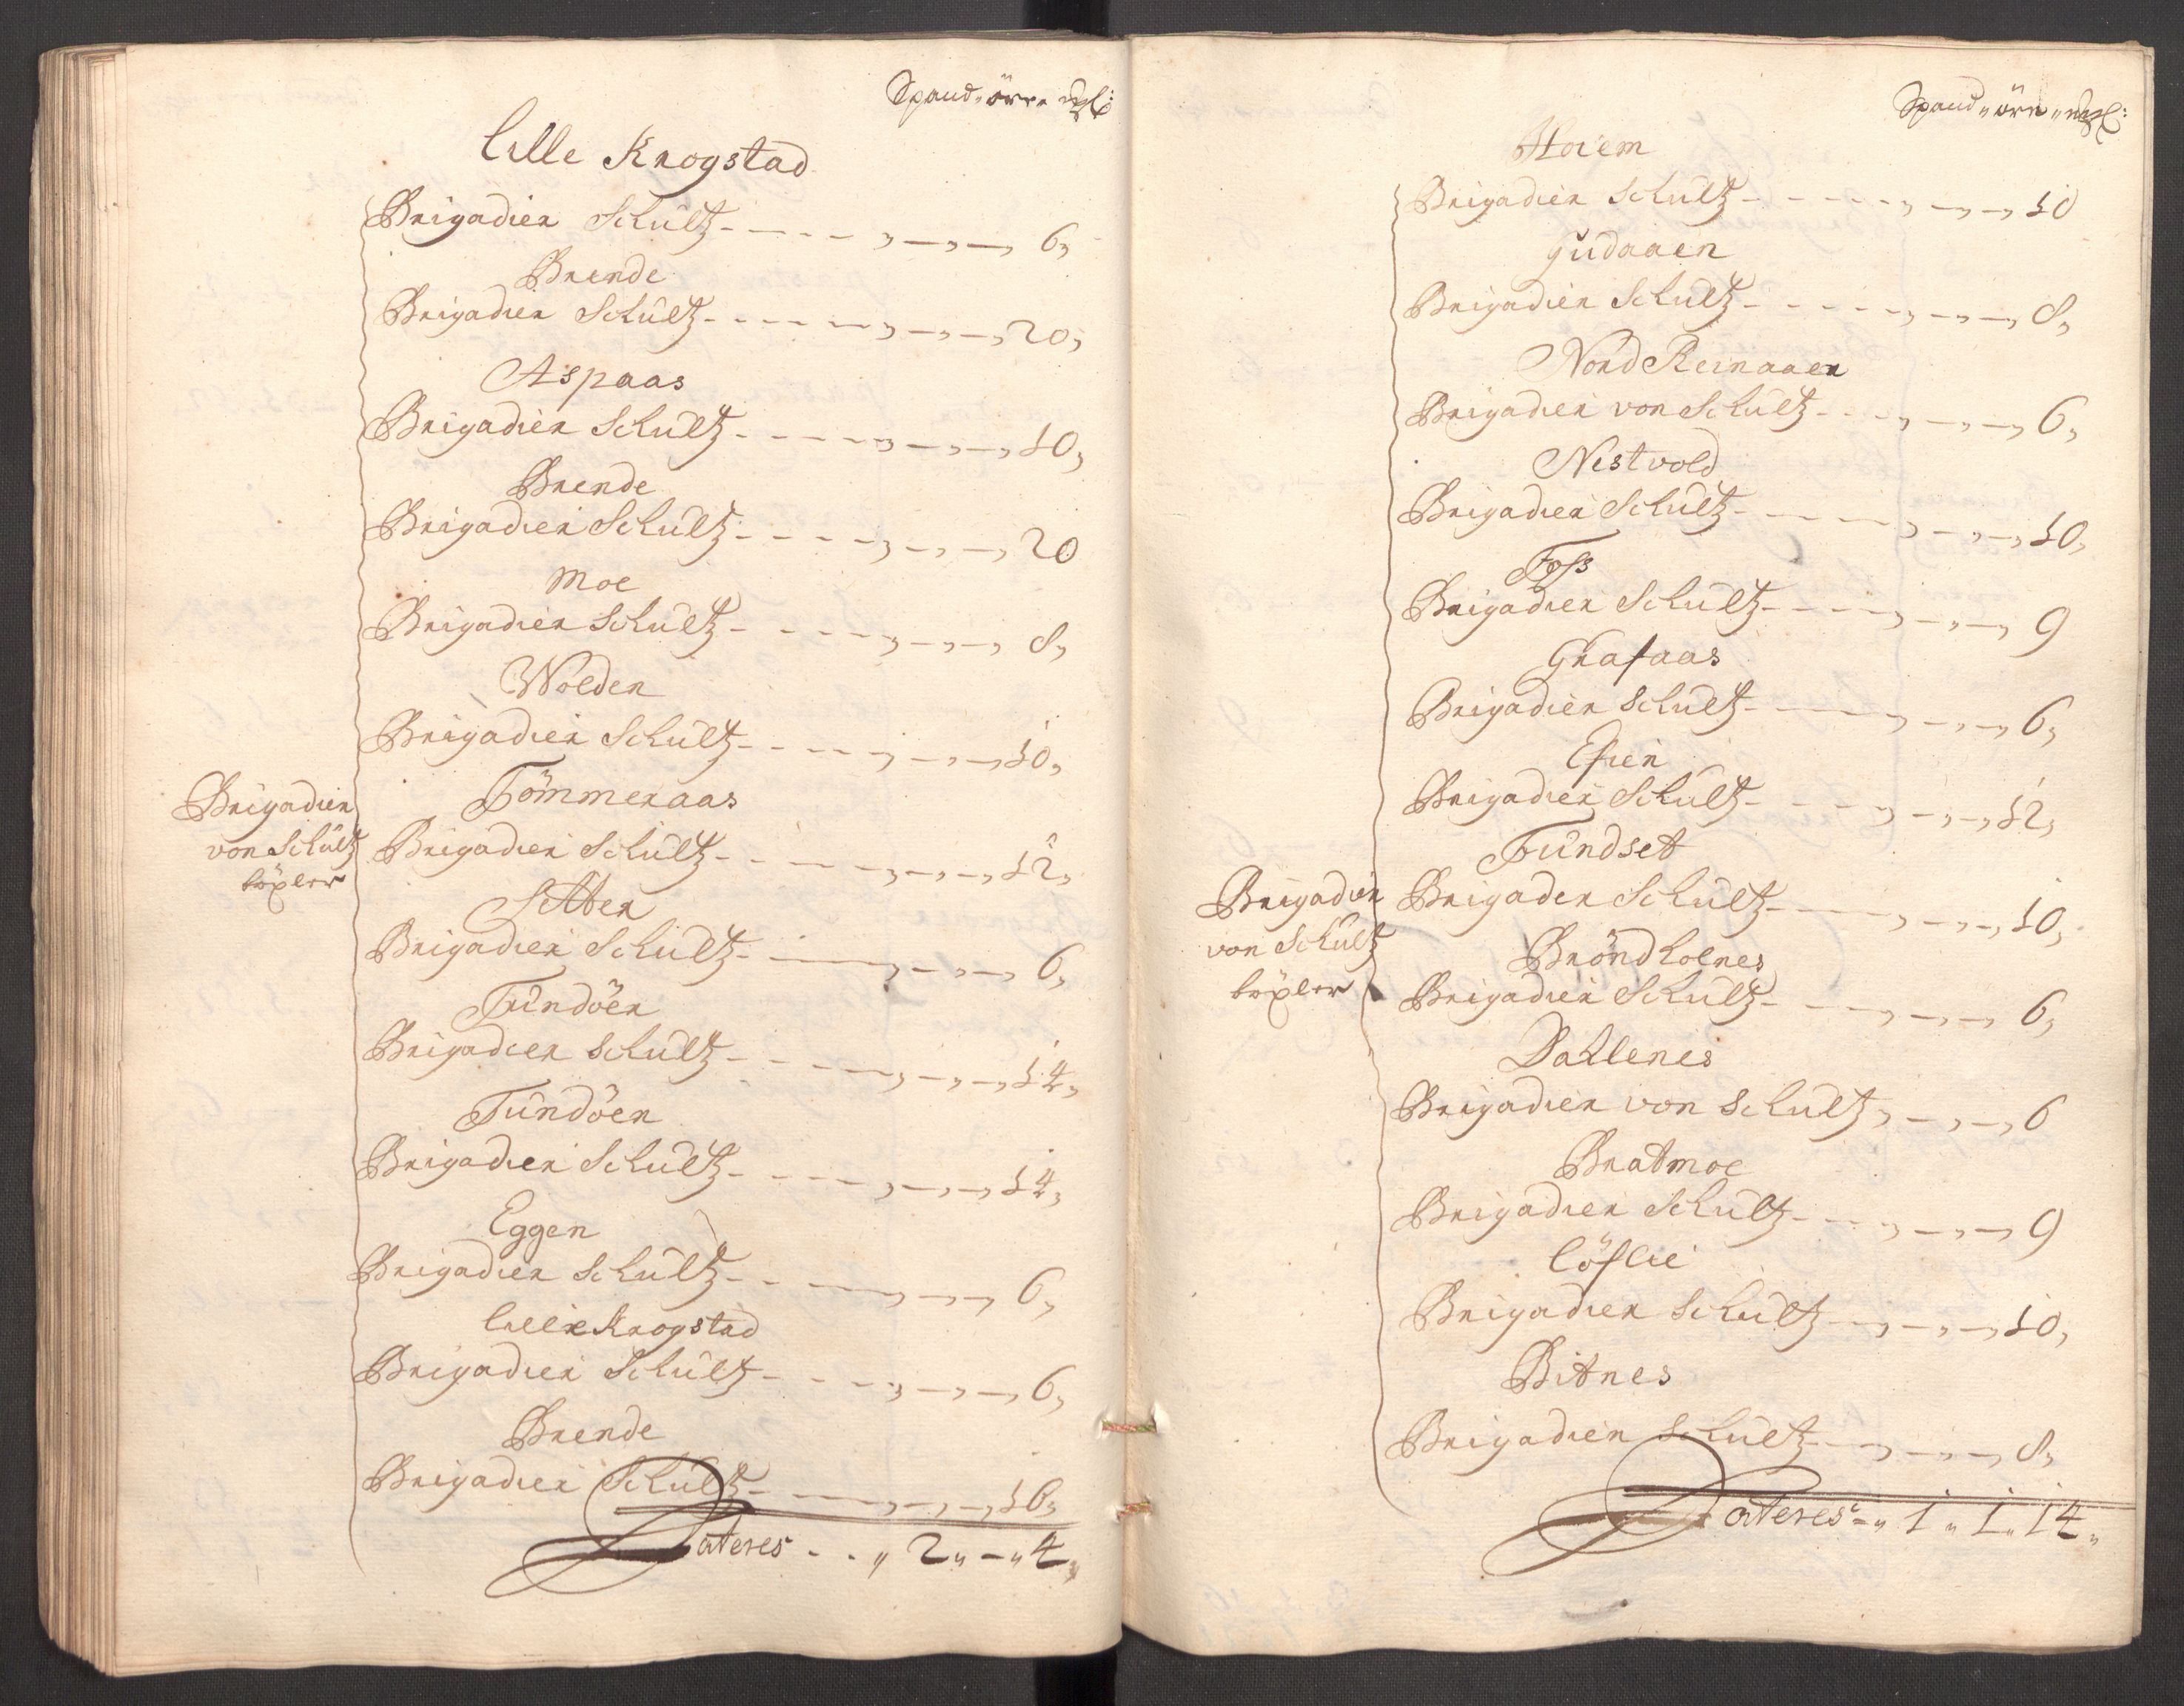 Spand „ örr „ mgl:
Lille Krogstad
Brigadier Schultz - - - - - „ — „ — „ 6„
Brende
Brigadier Schultz - - - - - „ — „ — „ 20„
Aspaas
Brigadier Schultz - - - - - „ — „ — „ 10„
Brende
Brigadier Schultz - - - - - „ — „ — „ 20
Moe
Brigadier Schultz - - - - - „ — „ — „ 8„
Wolden
Brigadier Schultz - - - - - „ — „ — „ 10„
Tömmeraas
Brigadier
von Schultz
böxler
Brigadier Schultz - - - - - „ — „ — „ 12„
Setter
Brigadier Schultz - - - - - „ — „ — „ 6„
Tundöen
Brigadier Schultz - - - - - „ — „ — „ 14„
Tundöen
Brigadier Schultz - - - - - „ — „ — „ 14„
Eggen
Brigadier Schultz - - - - - „ — „ — „ 6„
Lille Krogstad
Brigadier Schultz - - - - - „ — „ — „ 6„
Brende
Brigadier Schultz - - - - - „ — „ — „ 16„
Lateres - - „ 2 „ — „ 4„
Spand „ örr „ mgl:
Hoiem
Brigadier Schultz - - - - - „ — „ — „ 10
Gudaaen
Brigadier Schultz - - - - - „ — „ — „ 8„
Nord Reinaaen
Brigadier von Schultz - - - - „ — „ — „ 6„
Nestvold
Brigadier Schultz - - - - - „ — „ — „ 10„
Foss
Brigadier Schultz - - - - - „ — „ — „ 9
Grafaas
Brigadier Schultz - - - - - „ — „ — „ 6„
Efien
Brigadier Schultz - - - - - „ — „ — „ 12„
Fundset
Brigadier
von Schultz
böxler
Brigader Schultz - - - - - „ — „ — „ 10„
Bröndholnes
Brigadier Schultz - - - - - „ — „ — „ 6„
Dahlenes
Brigadier von Schultz „ — „ — „ 6
Bratmoe
Brigadier Schultz - - - - „ — „ — „ 9
Löflie
Brigadier Schultz - - - „ — „ — „ 10„
Bitnes
Brigadier Schultz - - - „ — „ — „ 8„
Lateres - „ 1 „ 1 „ 14„